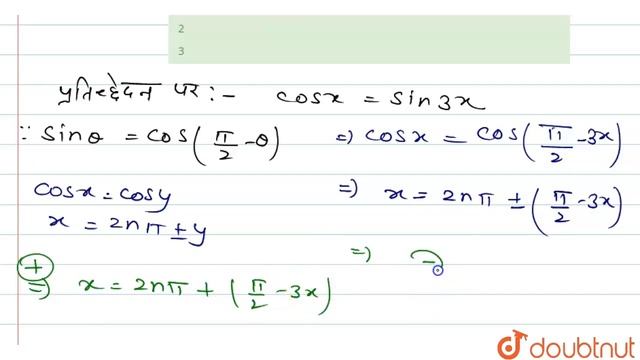 2
3
प्रतिच्छेदन पर :- cosx = sin3x
∵ sinθ = cos(π/2 - θ) ⇒ cosx = cos(π/2 - 3x)
cosx = cosy ⇒ x = 2nπ ± (π/2 - 3x)
x = 2nπ ± y
+ ⇒
⇒ x = 2nπ + (π/2 - 3x)
doubtnut